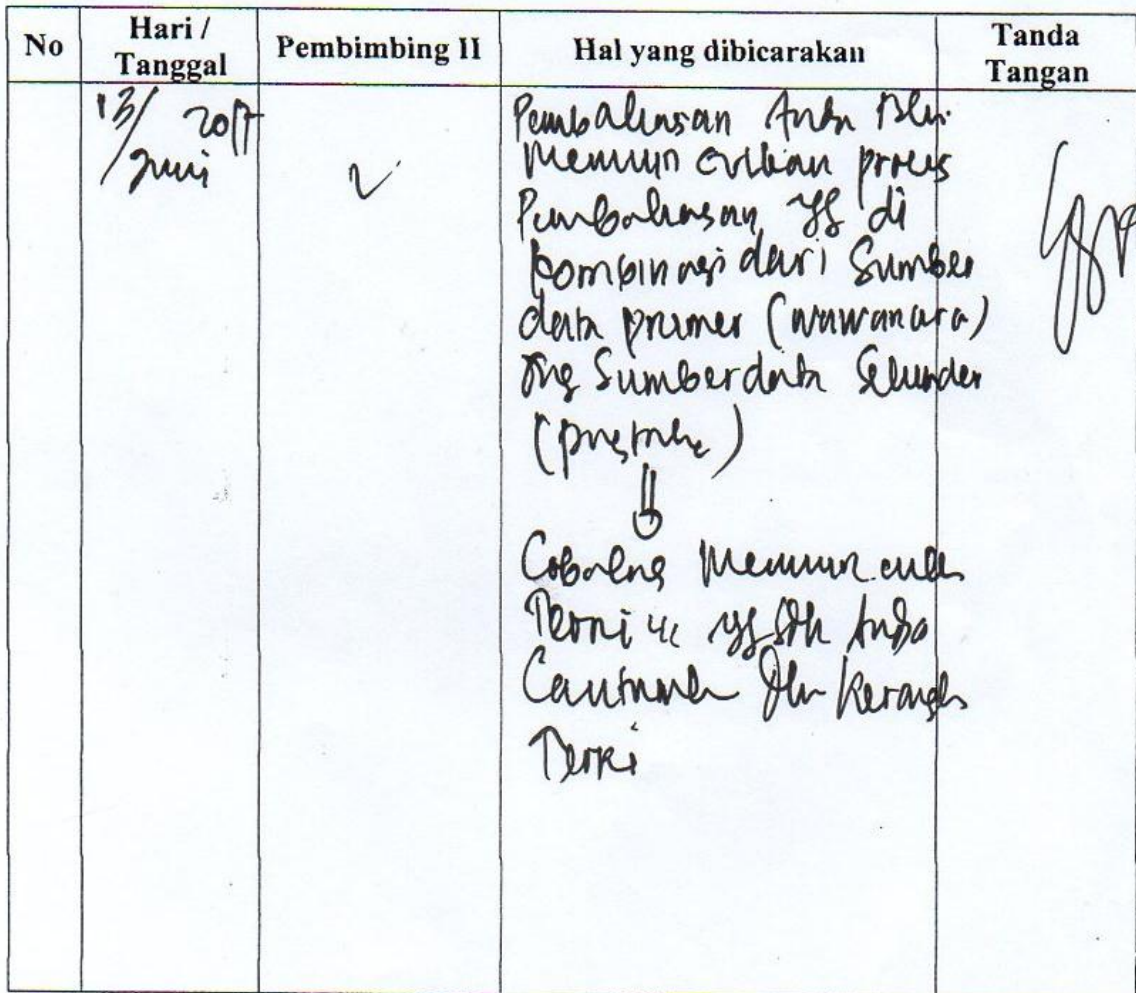 No
Hari /
Tanggal
Pembimbing II
Hal yang dibicarakan
Tanda
Tangan
13/ 2017
Juni
Pembahasan Anda Blm
memunculkan proses
Pembahasan yg di
kombinasi dari Sumber
data primer (wawancara)
dng Sumber data Sekunder
(pustaka)
Cobalah memunculkan
Teori yg sdh Anda
Cantumkan dlm Kerangka
Teori